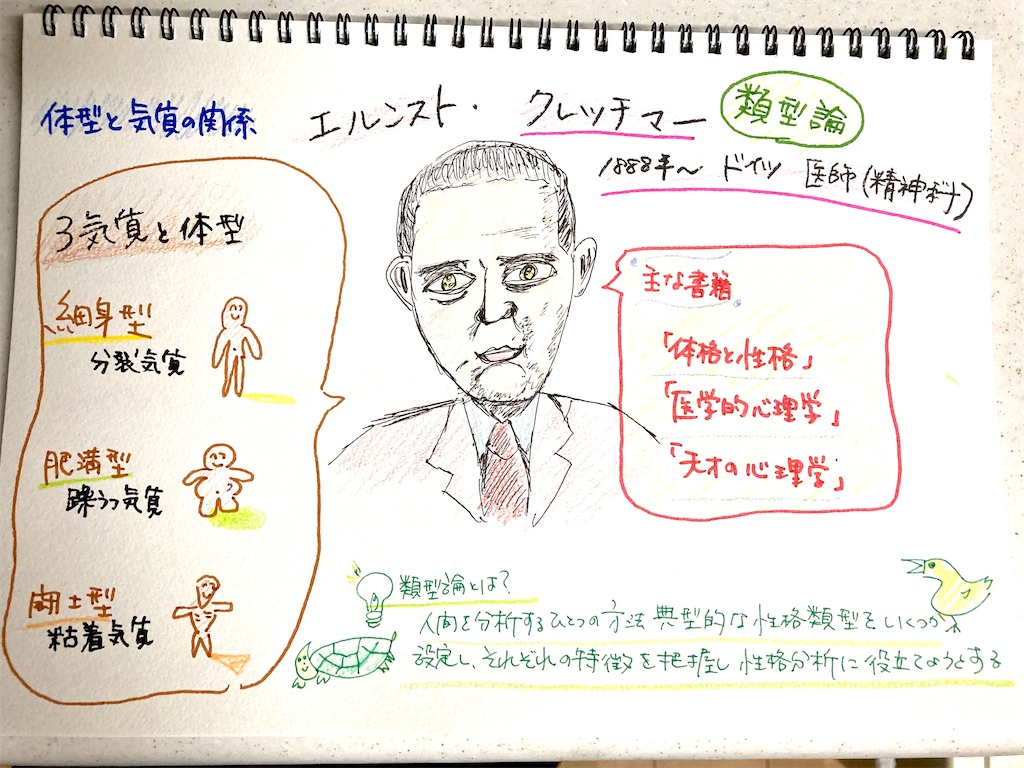 体型と気質の関係
エルンスト・クレッチマー
類型論
1888年〜 ドイツ 医師(精神科)
3気質と体型
細身型
分裂気質
肥満型
躁うつ気質
闘士型
粘着気質
主な書籍
「体格と性格」
「医学的心理学」
「天才の心理学」
類型論とは?
人間を分析するひとつの方法 典型的な性格類型をいくつか
設定し、それぞれの特徴を把握し 性格分析に役立てようとする